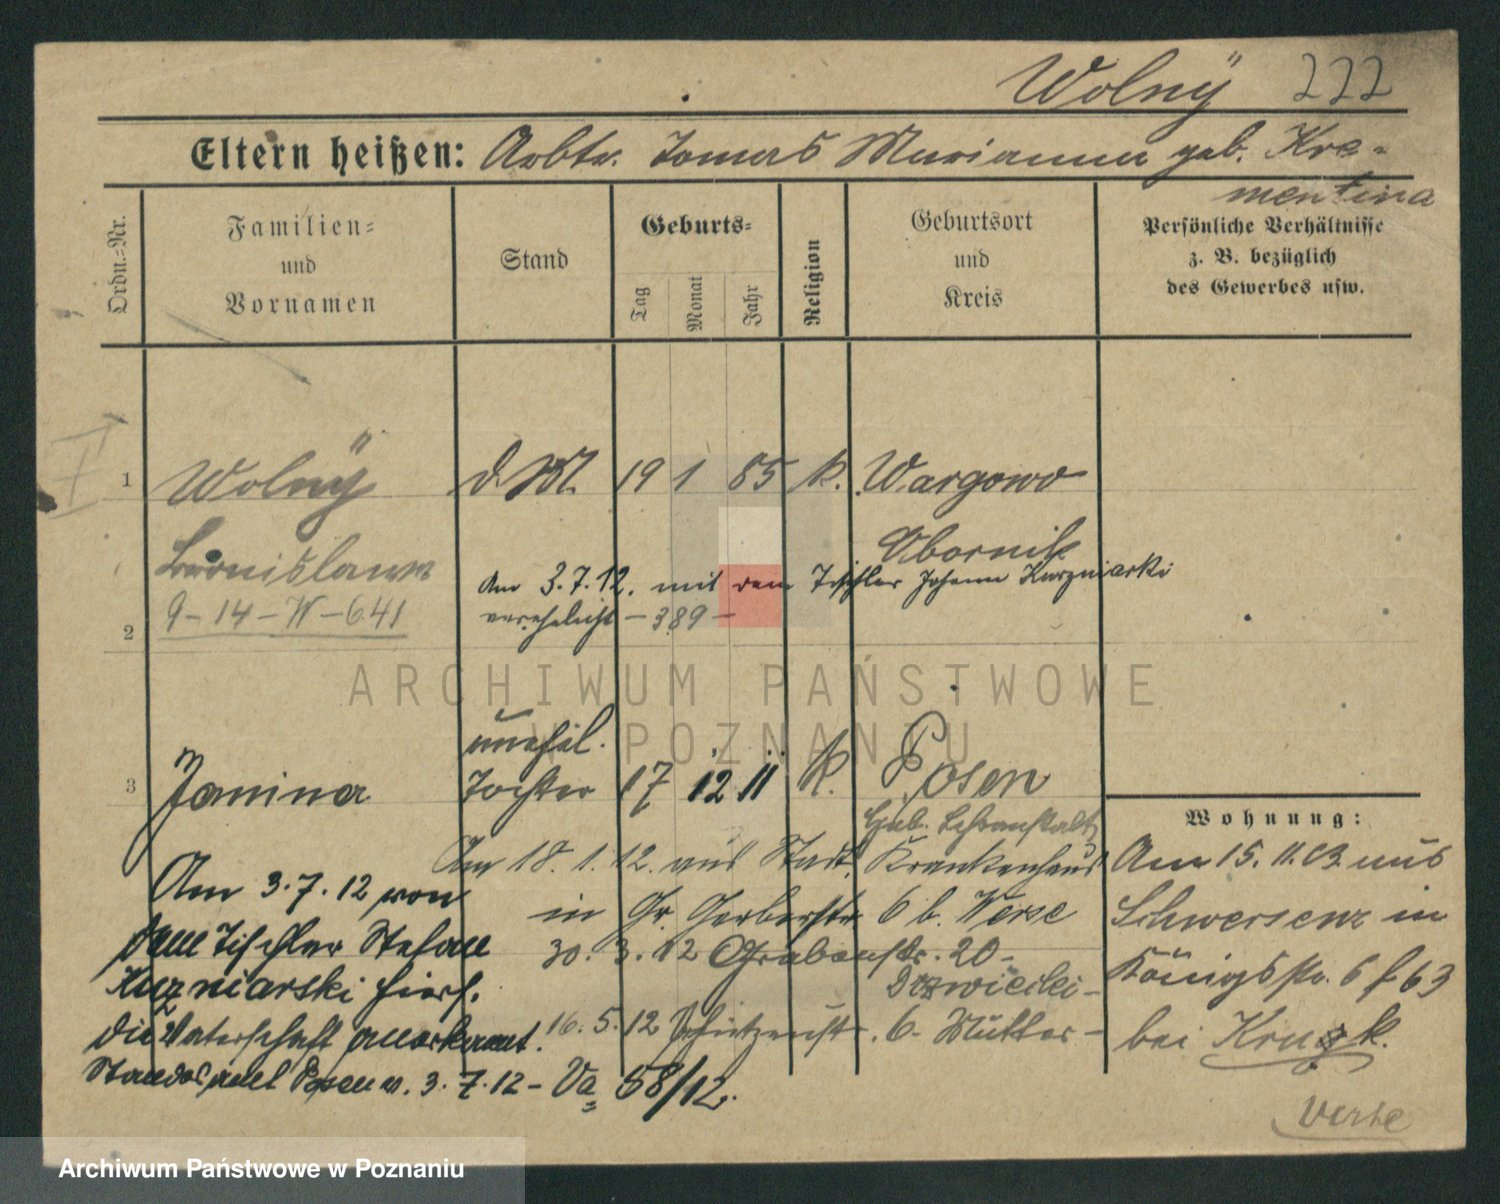 Wolnÿ 222
Eltern heißen: Arbtr. Tomas Marianna geb. Kre-
mentina
Ordn.-Nr.
Familien-
und
Vornamen
Stand
Geburts-
Tag
Monat
Jahr
Religion
Geburtsort
und
Kreis
Persönliche Verhältnisse
z. B. bezüglich
des Gewerbes usw.
1 Wolnÿ d. M. 19 1 85 k. Wargowo
Bronislawa Obornik
Am 3.7.12. mit dem Tischler Johann Kuzniarski
9-14-W-641 verehelicht -389-
2
unehel.
3 Janina Tochter 17 12 11 k. Posen
Heb. Lehranstalt
Wohnung:
Am 15.11.03 aus
Schwersenz in
Königsstr. 6 f 63
bei
Am 18.1.12. aus Stadt. Krankenhaus
in Gr. Gerberstr. 6 b. Werse
30.3.12 Grabenstr. 20-
Drzwiecki-
16.5.12 Schützenstr. 6. Mutter-
Am 3.7.12 von
dem Tischler Stefan
Kuzniarski hiers.
die Vaterschaft anerkannt.
Standesamt Posen v. 3.7.12 - Va 58/12.
ARCHIWUM PAŃSTWOWE
W POZNANIU
Archiwum Państwowe w Poznaniu